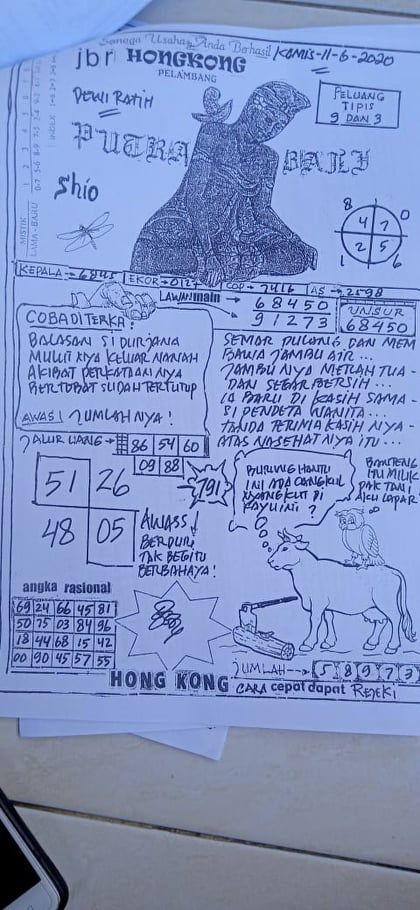 Semoga Usaha Anda Berhasil
KAMIS-11-6-2020
jbr HONGKONG
PELAMBANG
DEWI RATIH
PELUANG
TIPIS
9 DAN 3
PUTRA BALI
Shio
MISTIK
LAMA-BARU
INDEX
8 0
4 7
2 5
1 6
KEPALA → 6845
EKOR →
COP → 7416
AS →
LAWAN main → 68450
91273
UNSUR
68450
COBA DITERKA:
BALASAN SI DURJANA
MULUTNYA KELUAR NANAH
AKIBAT PERKATAANNYA
BERTOBAT SUDAH TERTUTUP
AWAS! JUMLAHNYA!
SEMAR PULANG DAN MEM
BAWA JAMBU AIR...
JAMBUNYA MERAH TUA-
DAN SEGAR BERSIH...
IA BARU DI KASIH SAMA-
SI PENDETA WANITA...
TANDA TERIMA KASIHNYA-
ATAS NASEHATNYA ITU...
JALUR UANG → 86 54 60
09 88
791
51 26
48 05
AWASS!
BERDURI
TAK BEGITU
BERBAHAYA!
BURUNG HANTU
INI ADA CANGKUL
NYANGKUT DI
KAYU INI?
BANTENG
ITU MILIK
PAK TANI
AKU LAPAR
angka rasional
69 24 66 45 81
50 75 03 84 96
18 44 68 15 42
00 90 45 57 55
JUMLAH → 5 8 9 7 3
HONG KONG CARA cepat dapat REJEKI